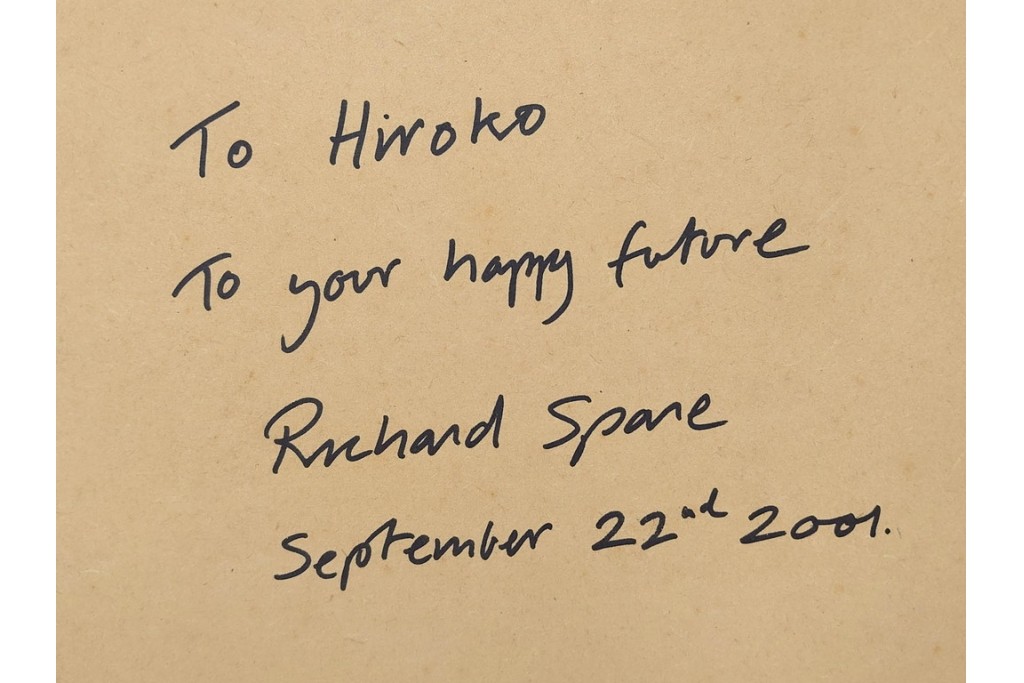 To Hiroko
To your happy future
Richard Spare
September 22nd 2001.